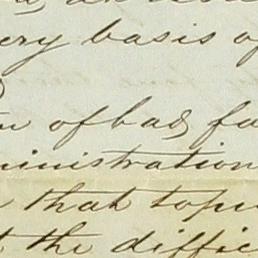 ery basis of
of bad fa
ministration
that topi
the diffic